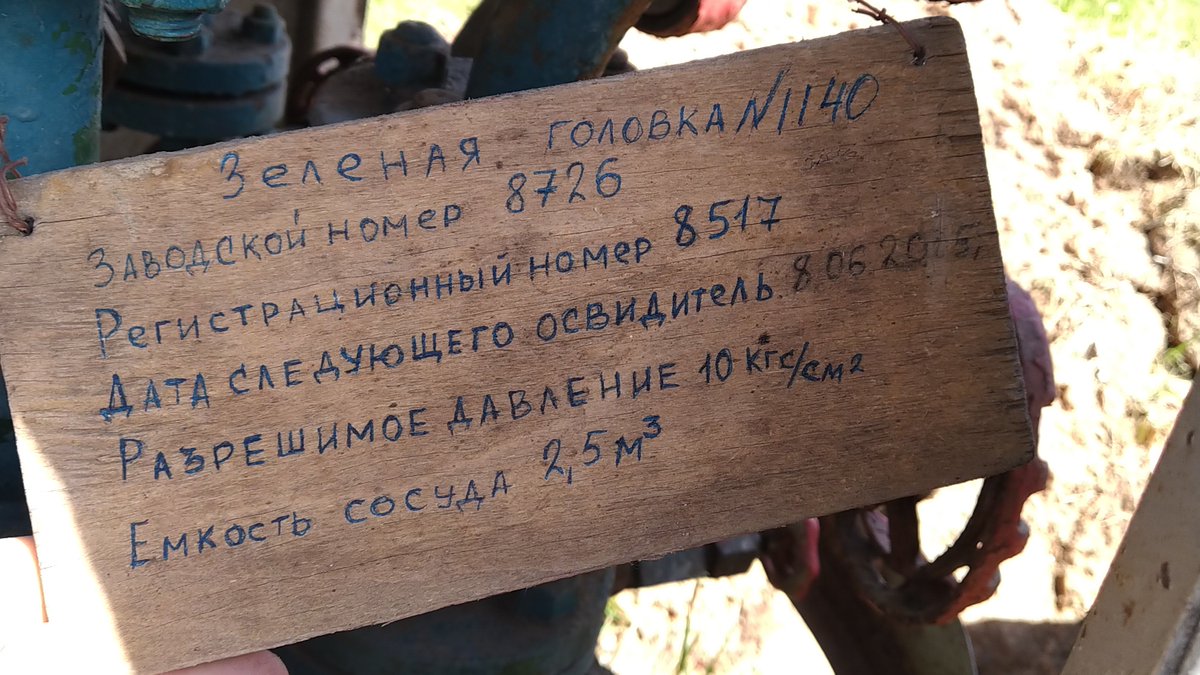 Зеленая головка №1140
Заводской номер 8726
Регистрационный номер 8517
Дата следующего освидитель 8.06.2015,
Разрешимое давление 10 кгс/см²
Емкость сосуда 2,5 м³